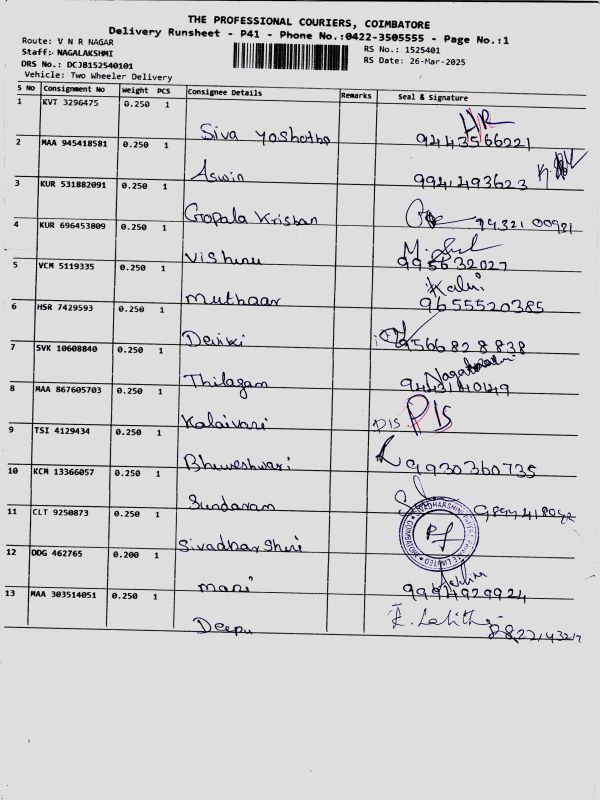 THE PROFESSIONAL COURIERS, COIMBATORE
Delivery Runsheet - P41 - Phone No.:0422-3505555 - Page No.:1
Route: V N R NAGAR
RS No.: 1525401
Staff: NAGALAKSHMI
RS Date: 26-Mar-2025
DRS No.: DCJB152540101
Vehicle: Two Wheeler Delivery
S No Consignment No Weight PCS Consignee Details Remarks Seal & Signature
1 KVT 3296475 0.250 1
HR
Siva yoshotha 9443566221
2 MAA 945418581 0.250 1
Aswin 9941493623
3 KUR 531882091 0.250 1
Gopala Krishan 94321 00981
4 KUR 696453809 0.250 1
Vishnu 995632027
5 VCM 5119335 0.250 1
Kalni
muthaar 9655520385
6 HSR 7429593 0.250 1
Deviki 9566828838
7 SVK 10608840 0.250 1
Thilagam 9443140149
8 MAA 867605703 0.250 1
Kalaivani DIS PIS
9 TSI 4129434 0.250 1
Bhuveshwari 9930360735
10 KCM 13366057 0.250 1
Sundaram
11 CLT 9250873 0.250 1
Sivadharshini
12 DDG 462765 0.200 1
mani 9994929924
13 MAA 303514051 0.250 1
Deepu